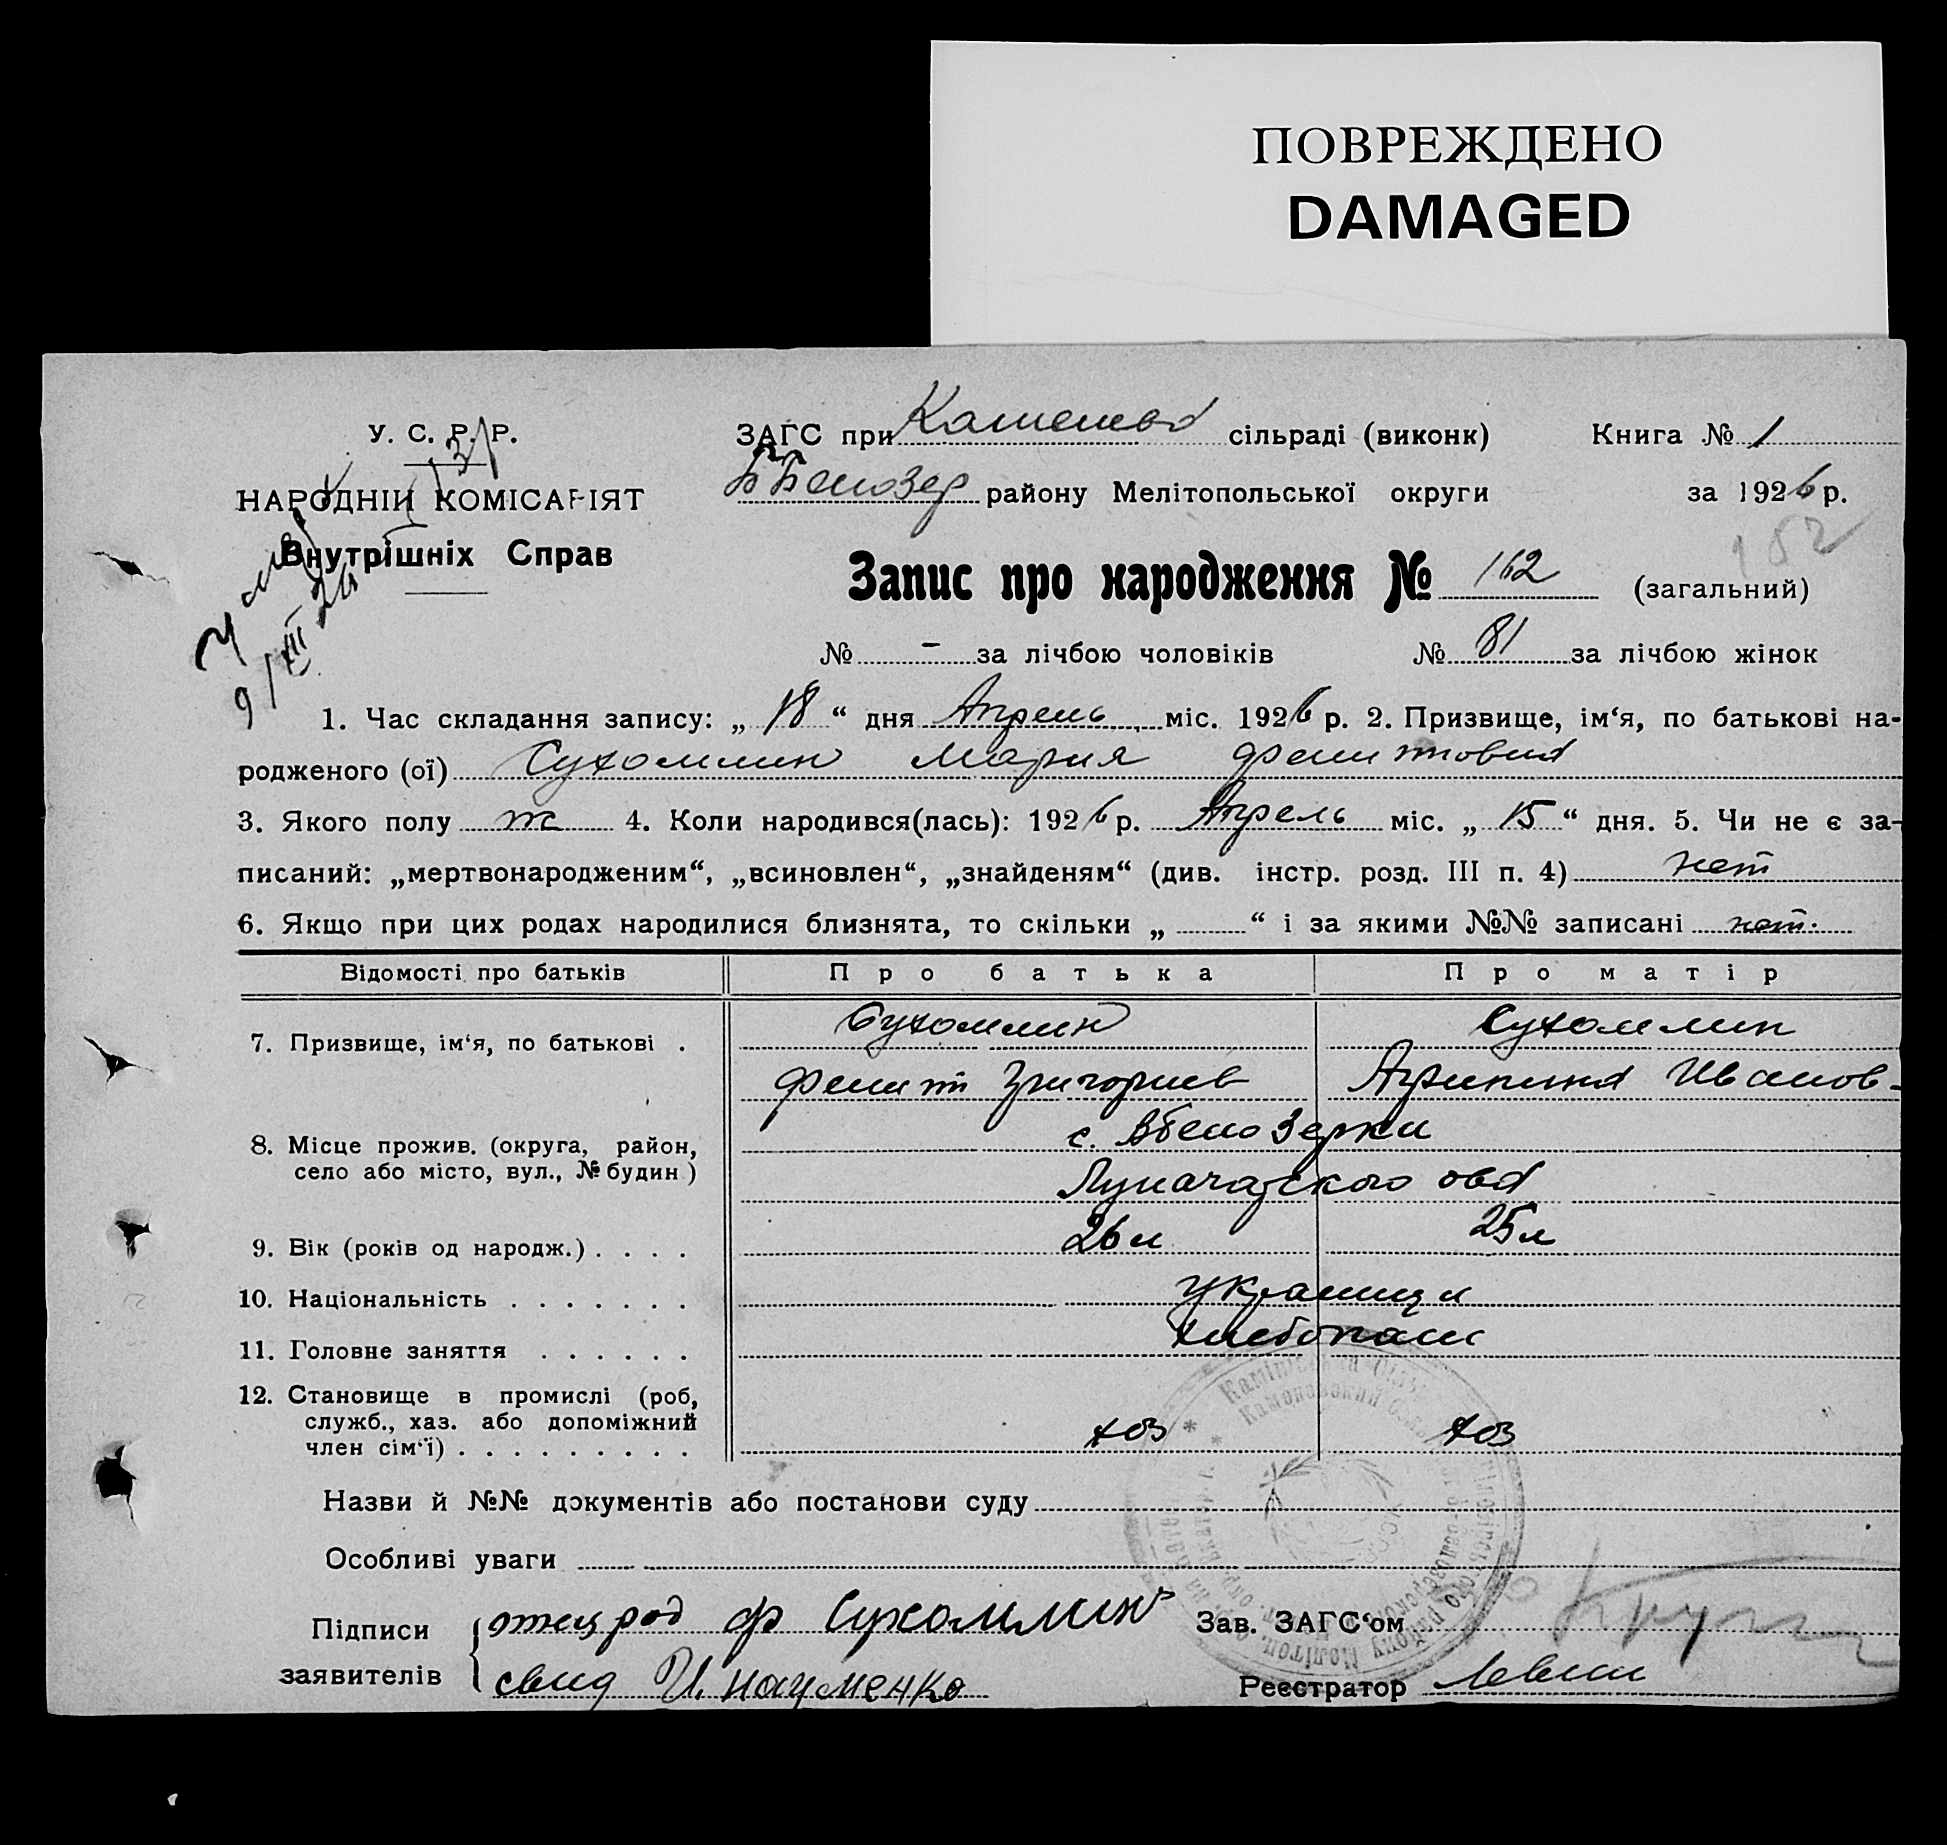 ПОВРЕЖДЕНО
DAMAGED
У. С. Р. Р.
НАРОДНІЙ КОМІСАРІЯТ
Внутрішніх Справ
ЗАГС при сільраді (виконк) Книга № 1
району Мелітопольської округи за 1926 р.
152
Запис про народження № 162 (загальний)
№ - за лічбою чоловіків № 81 за лічбою жінок
1. Час складання запису: „ 18 “ дня Апрель міс. 1926 р. 2. Призвище, ім‘я, по батькові на-
родженого (ої) Сухомлин Мария Филитовна
3. Якого полу ж 4. Коли народився(лась): 1926 р. Апрель міс. „ 15 “ дня. 5. Чи не є за-
писаний: „мертвонародженим“, „всиновлен“, „знайденям“ (див. інстр. розд. III п. 4) нет
6. Якщо при цих родах народилися близнята, то скільки „ “ і за якими №№ записані нет.
Відомості про батьків Про батька Про матір
7. Призвище, ім‘я, по батькові . Сухомлин Сухомлин
Григориев Агрипина Иванов-
8. Місце прожив. (округа, район, с. Вбелозерки
село або місто, вул., № будин) Луначарского
9. Вік (років од народж.) . . . . 26 л 25 л
10. Національність . . . . . . . украинци
11. Головне заняття . . . . . . хлебопаш
12. Становище в промислі (роб,
служб., хаз. або допоміжний
член сім‘ї) . . . . . . . . . хоз хоз
Назви й №№ документів або постанови суду
Особливі уваги
Підписи отец род ф Сухомлин Зав. ЗАГС‘ом
заявителів свид И. Науменко Реєстратор